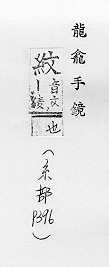 龍龕手鏡
紋
音文
丨綾
也
(糸部 P396)